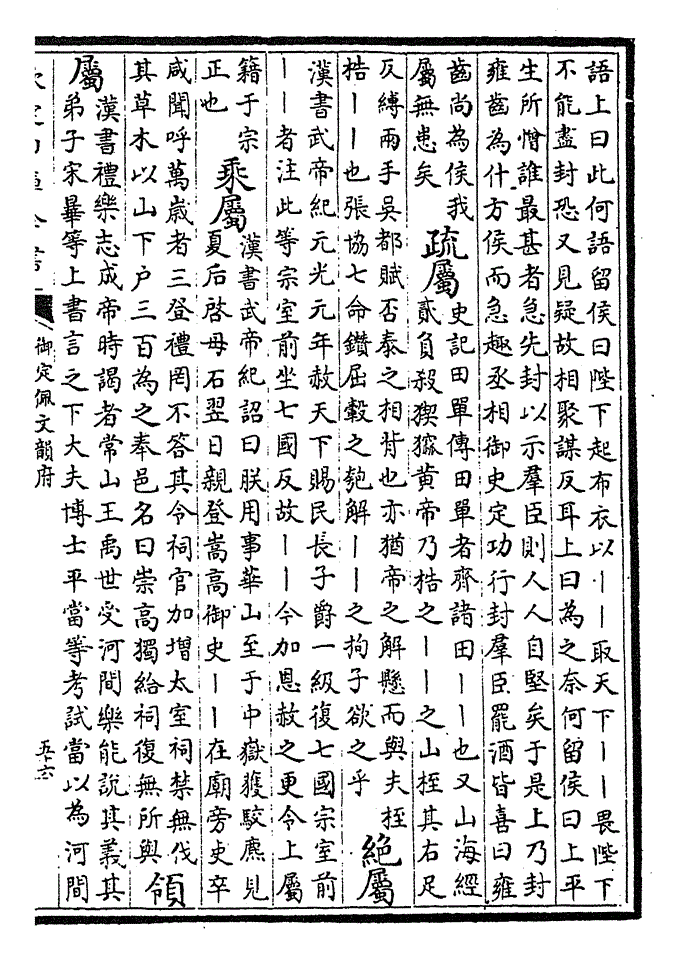 語上曰此何語留侯曰陛下起布衣以丨丨取天下丨丨畏陛下
不能盡封恐又見疑故相聚謀反耳上曰為之奈何留侯曰上平
生所憎誰最甚者急先封以示羣臣則人人自堅矣于是上乃封
雍齒為什方侯而急趣丞相御史定功行封羣臣罷酒皆喜曰雍
齒尚為侯我
屬無患矣
疏屬
史記田單傳田單者齊諸田丨丨也又山海經
貳負殺猰貐黄帝乃梏之丨丨之山桎其右足
反縛兩手吳都賦否泰之相背也亦猶帝之解懸而與夫桎
梏丨丨也張協七命鑽屈轂之瓠解丨丨之拘子欲之乎
絕屬
漢書武帝紀元光元年赦天下賜民長子爵一級復七國宗室前
丨丨者注此等宗室前坐七國反故丨丨今加恩赦之更令上屬
籍于宗
正也
乘屬
漢書武帝紀詔曰朕用事華山至于中嶽獲駮麃見
夏后啓母石翌日親登嵩高御史丨丨在廟旁吏卒
咸聞呼萬歲者三登禮罔不答其令祠官加增太室祠禁無伐
其草木以山下户三百為之奉邑名曰崇高獨給祠復無所與
領
屬
漢書禮樂志成帝時謁者常山王禹世受河間樂能說其義其
弟子宋畢等上書言之下大夫博士平當等考試當以為河間
御定佩文韻府
五十六